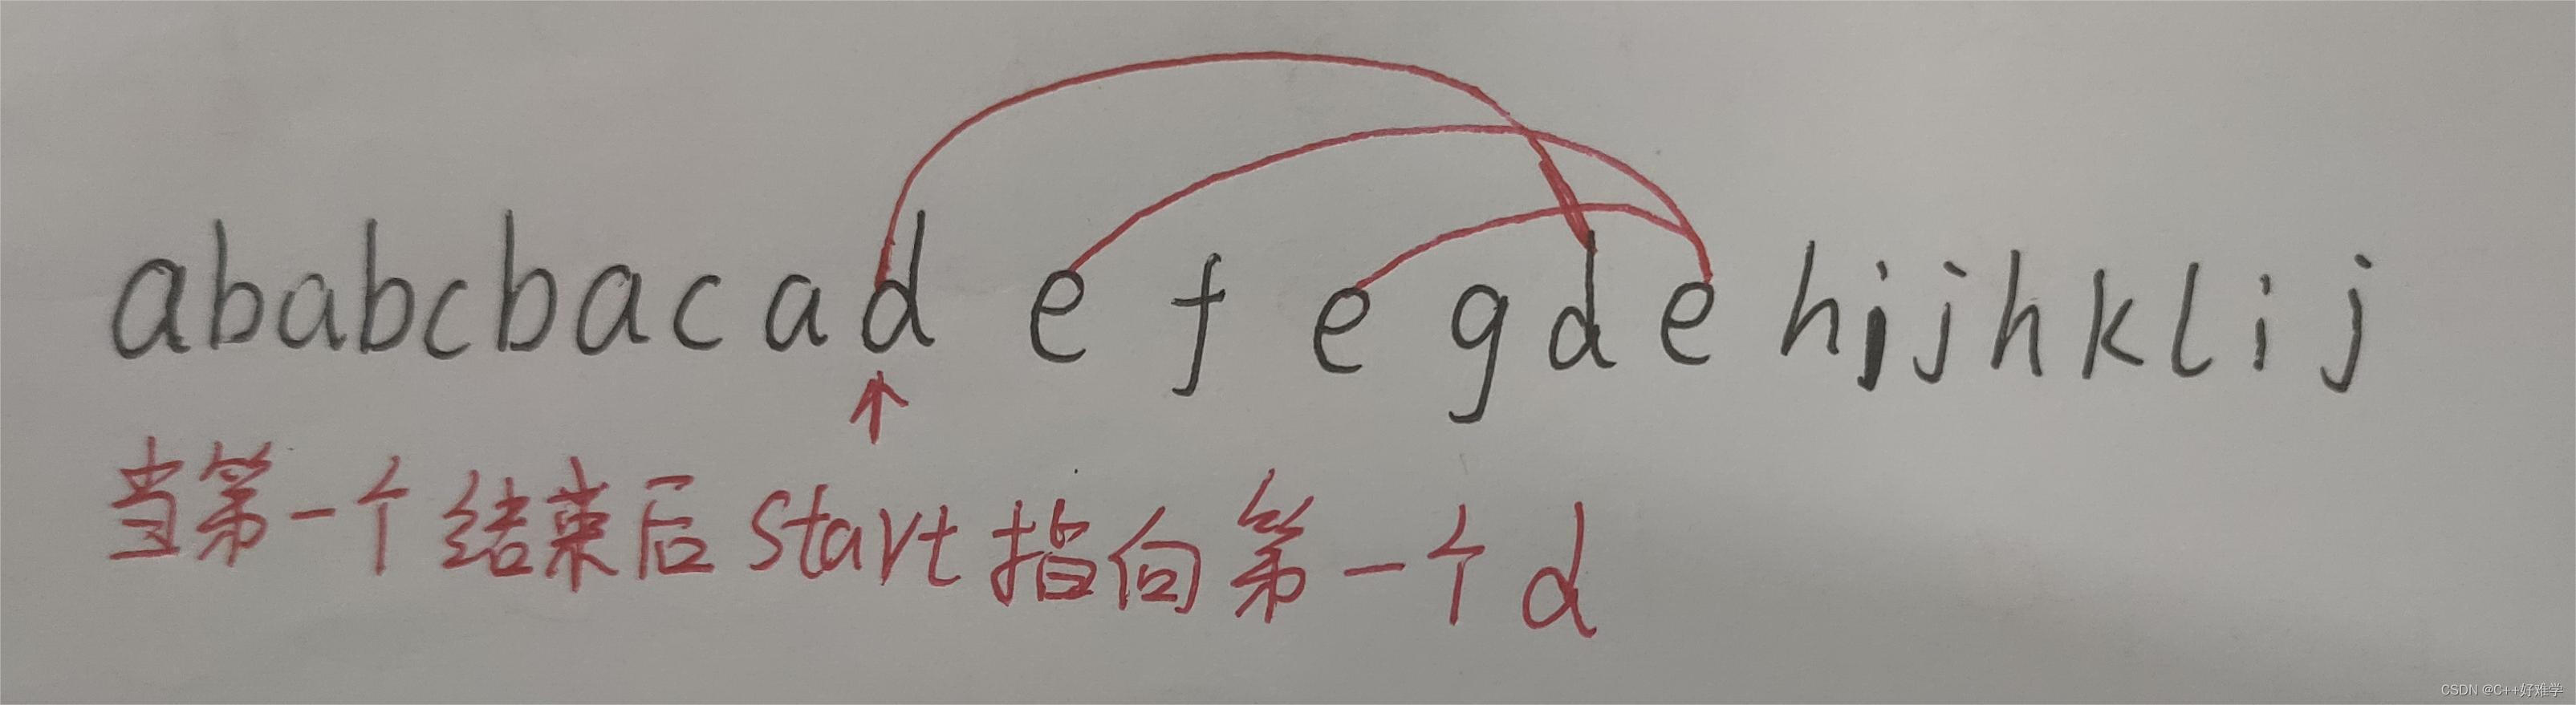 ababcbacad e f e g d e hijhklij
当第一个结束后start指向第一个d
CSDN @C++好难学